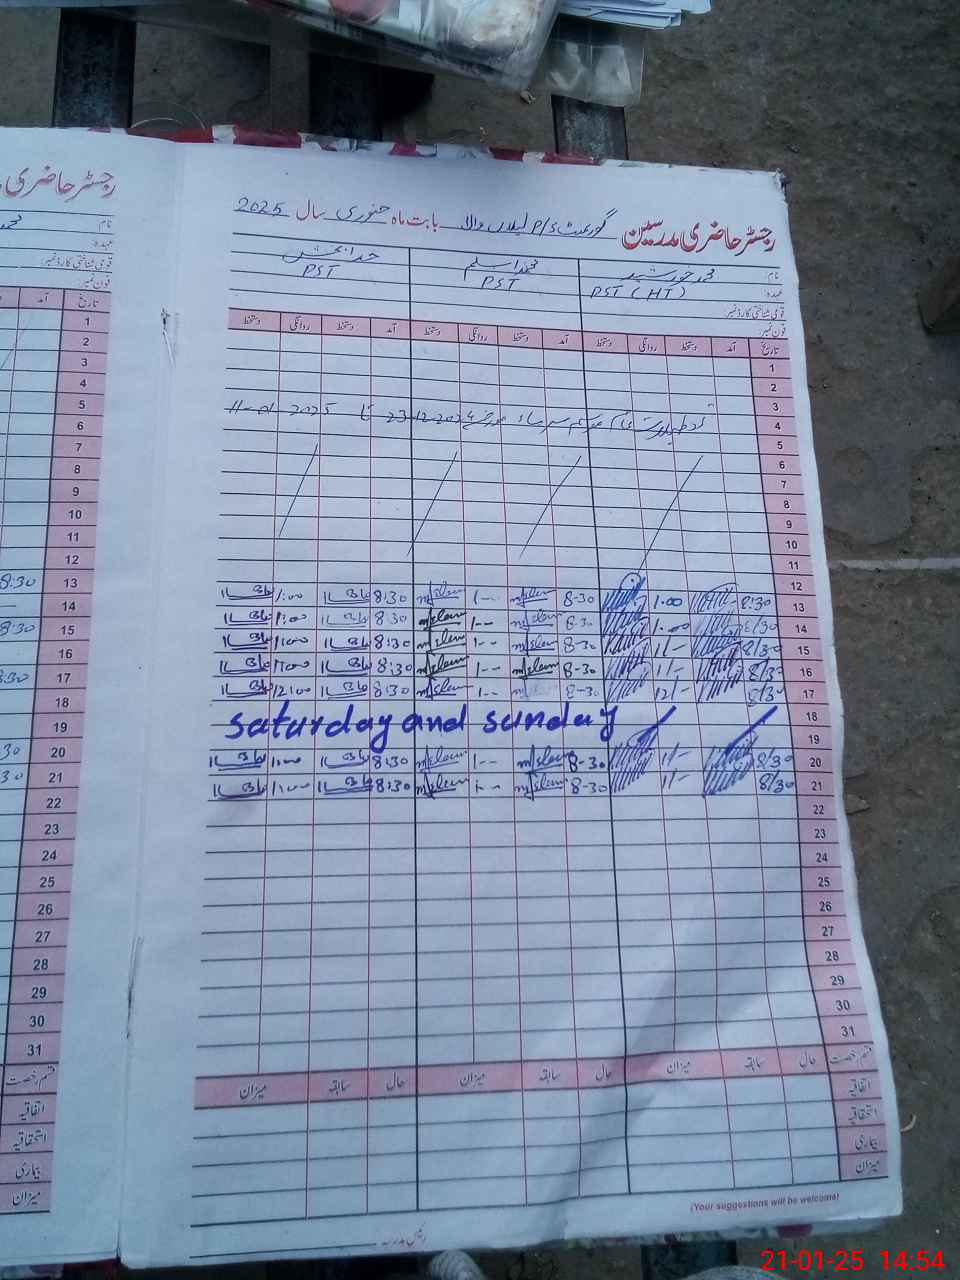 رجسٹر حاضری مدرسین گورنمنٹ P/S لیلاں والا بابت ماہ جنوری سال 2025
رجسٹر حاضری
نام: محمد خورشید محمد اسلم خدا بخش
عہدہ: PST (HT) PST PST
قومی شناختی کارڈ نمبر:
فون نمبر:
تاریخ آمد دستخط روانگی دستخط آمد دستخط روانگی دستخط آمد دستخط روانگی دستخط
1
2
3
4 تعطیلات موسم سرما مورخہ 23-12-2024 تا 11-01-2025
5
6
7
8
9
10
11
12
13 8:30 1.00 8-30 M/Slam 1-- M/Slam 8:30 1:00
14 8/30 1.00 8-30 M/Slam 1-- M/Slam 8:30 1:00
15 8/30 1/- 8-30 M/Slam 1-- M/Slam 8:30 1:00
16 8/30 1/- 8-30 M/Slam 1-- M/Slam 8:30 1:00
17 8/30 12/- 8-30 M/Slam 1-- M/Slam 8:30 12:00
18
saturday and sunday
19
20 8/30 1/- 8-30 M/Slam 1-- M/Slam 8:30 1:00
21 8/30 1/- 8-30 M/Slam 1-- M/Slam 8:30 1:00
22
23
24
25
26
27
28
29
30
31
قسم رخصت حال سابقہ میزان حال سابقہ میزان حال سابقہ میزان
اتفاقیہ
استحقاقیہ
بیماری
میزان
(Your suggestions will be welcome)
رئیس مدرسہ
نام
عہدہ
قومی شناختی کارڈ نمبر:
فون نمبر:
تاریخ آمد
1
2
3
4
5
6
7
8
9
10
11
12
13 8:30
14
15 8:30
16
17 8:30
18
19
20 30
21 30
22
23
24
25
26
27
28
29
30
31
قسم رخصت
اتفاقیہ
استحقاقیہ
بیماری
میزان
21-01-25 14:54